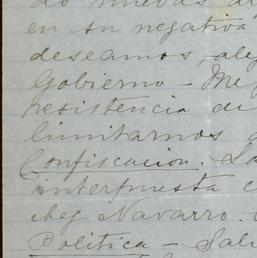 do nuevas
en su negativa
deseamos ale
Gobierno - Me
resistencia di
limitarnos a
Confiscacion. La
interpuesta c
chez Navarro.
Politica - Sal